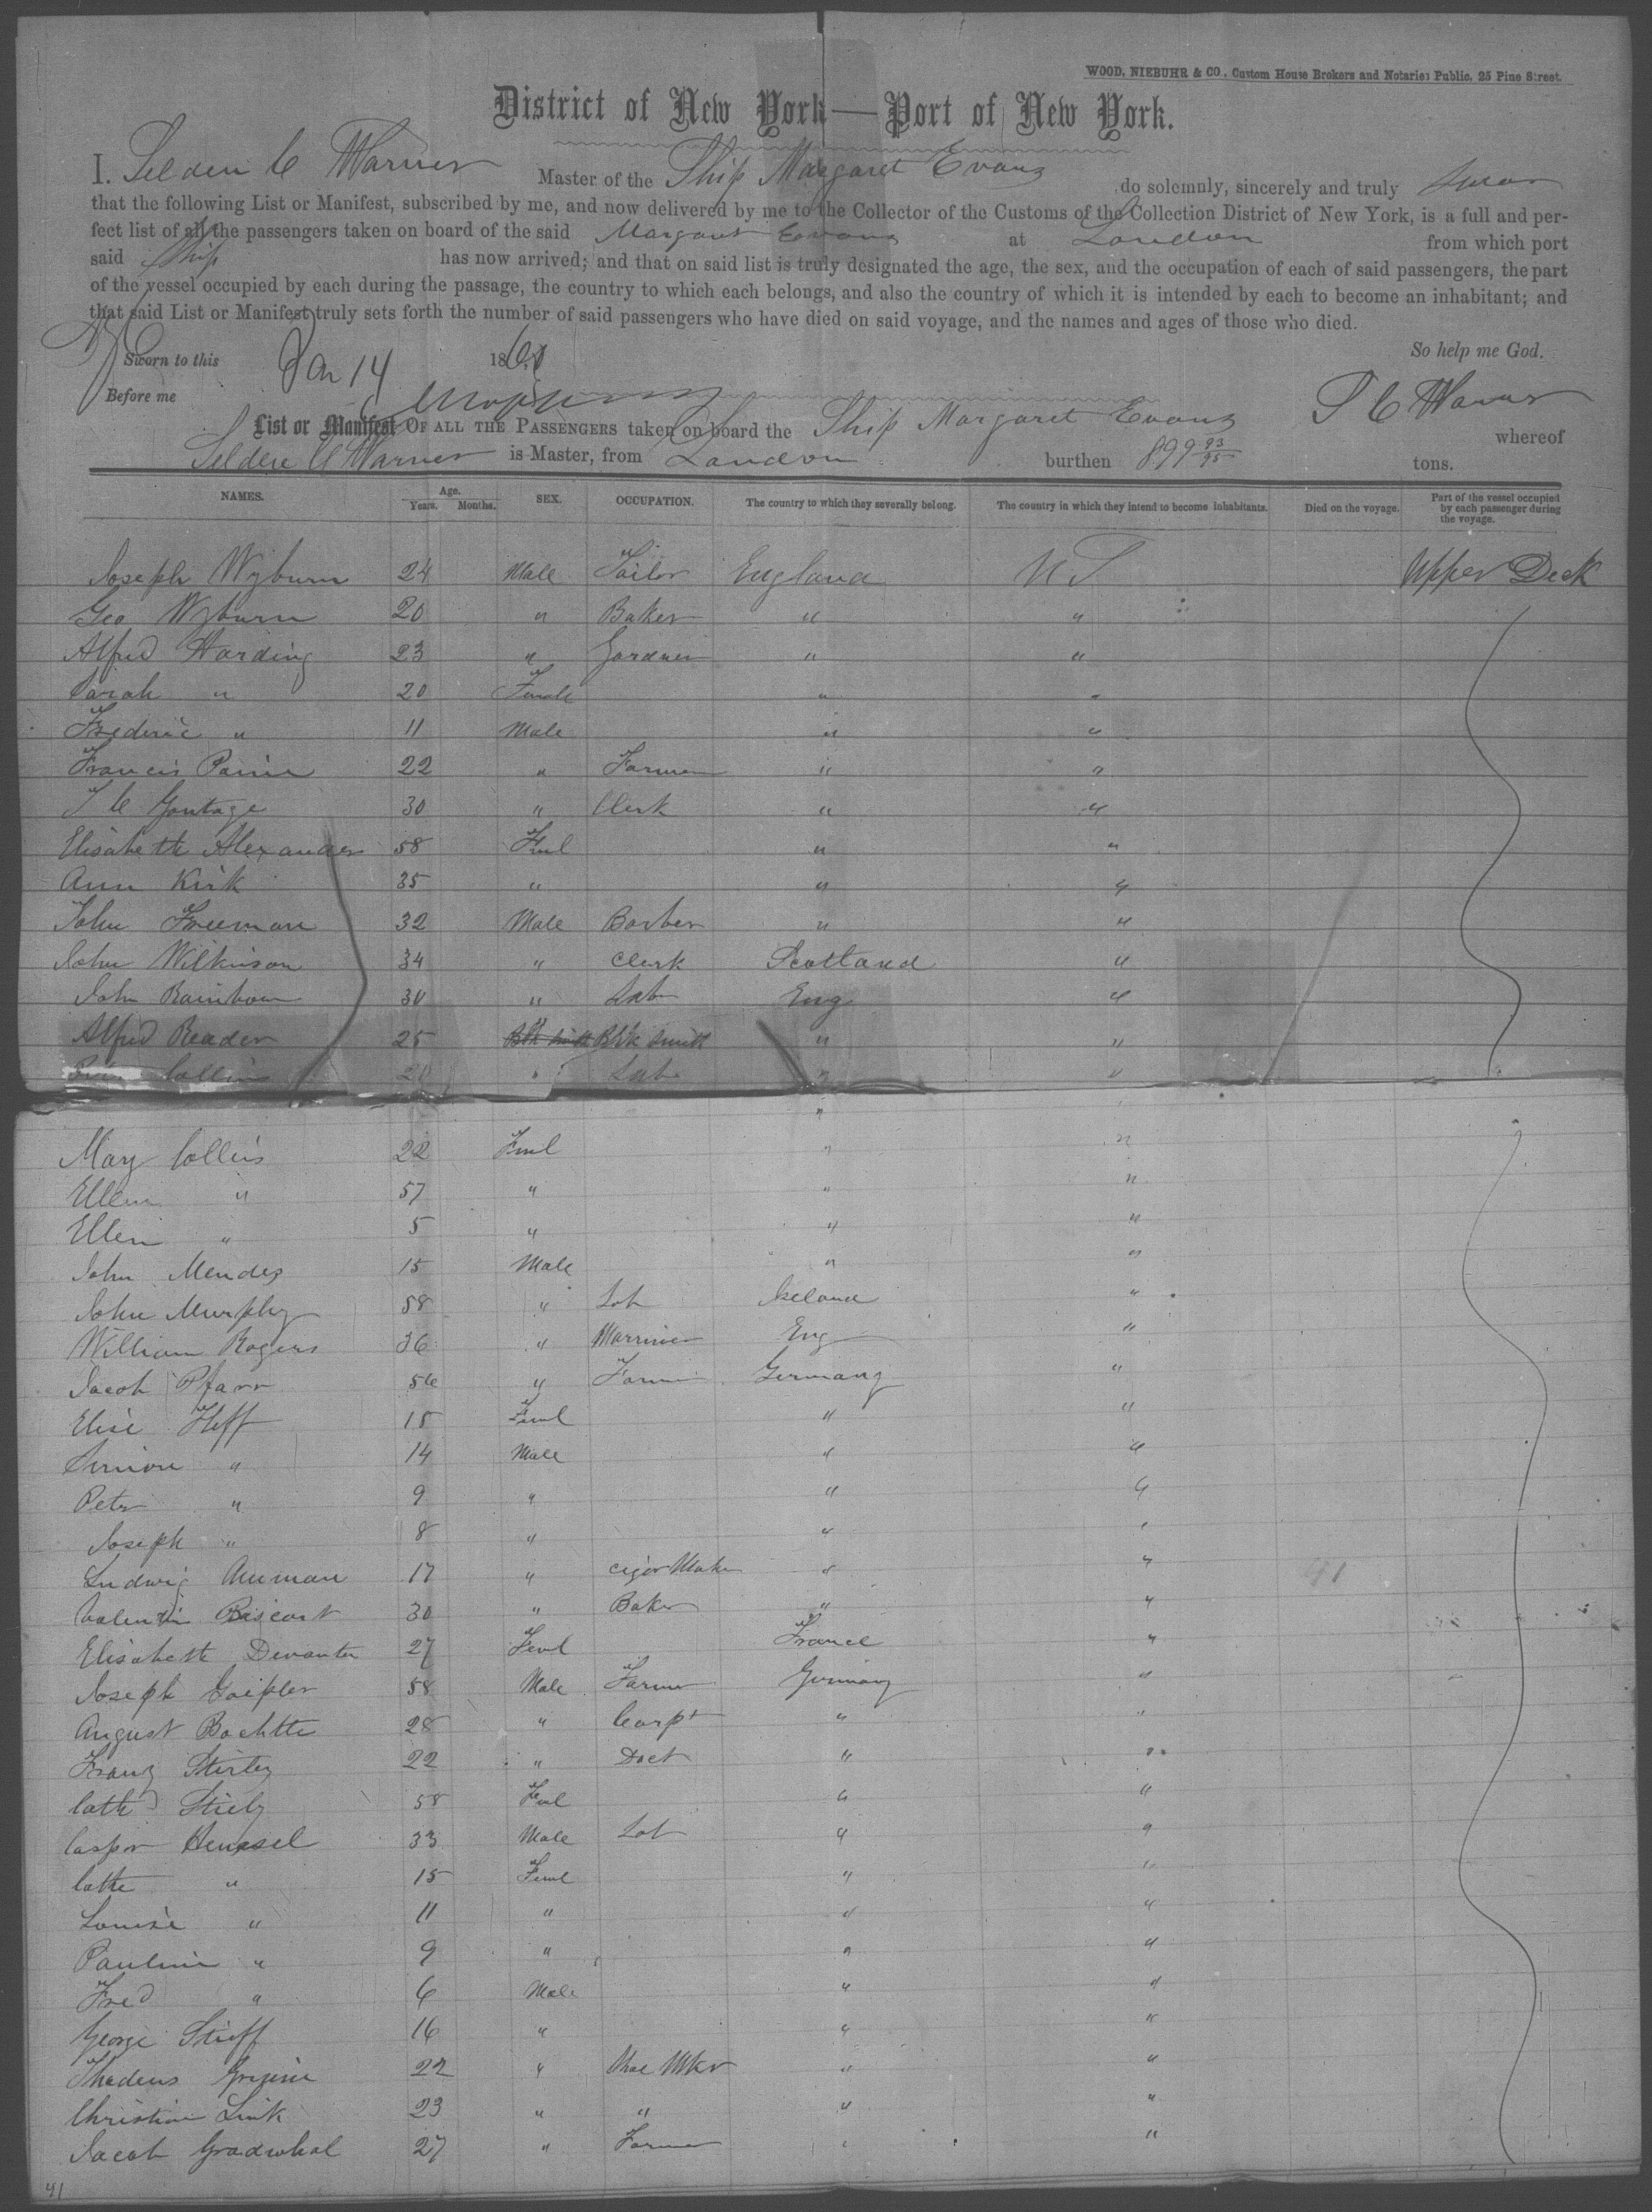 WOOD, NIEBUHR & CO., Custom House Brokers and Notaries Public, 25 Pine Street.
District of New York — Port of New York.
I. Selden C Warner Master of the Ship Margaret Evans do solemnly, sincerely and truly Swear
that the following List or Manifest, subscribed by me, and now delivered by me to the Collector of the Customs of the Collection District of New York, is a full and per-
fect list of all the passengers taken on board of the said Margaret Evans at London from which port
said Ship has now arrived; and that on said list is truly designated the age, the sex, and the occupation of each of said passengers, the part
of the vessel occupied by each during the passage, the country to which each belongs, and also the country of which it is intended by each to become an inhabitant; and
that said List or Manifest truly sets forth the number of said passengers who have died on said voyage, and the names and ages of those who died.
So help me God.
Sworn to this Jan 14 186
Before me S C Warner
List or Manifest OF ALL THE PASSENGERS taken on board the Ship Margaret Evans whereof
Selden C Warner is Master, from London burthen 899 93/95 tons.
NAMES. Age. Years. Months. SEX. OCCUPATION. The country to which they severally belong. The country in which they intend to become inhabitants. Died on the voyage. Part of the vessel occupied by each passenger during the voyage.
Joseph Wyburn 24 Male Tailor England U S Upper Deck
Geo Wyburn 20 " Baker " "
Alfred Harding 23 " Gardner " "
Sarah " 20 Female " "
Frederic " 11 Male " "
Francis 22 " Farmer " "
30 " Clerk " "
Elisabeth Alexander 58 Feml " "
Ann Kirk 35 " " "
John Freeman 32 Male Barber " "
John Wilkinson 34 " Clerk Scotland "
John Rainbow 30 " Lab Eng "
Alfred Reader 25 " Blk Smith " "
Collins " Lab " "
Mary Collins 22 Feml " "
Ellen " 57 " " "
Ellen " 5 " " "
John Mendez 15 Male " "
John Murphy 58 " Lab Ireland "
William Rogers 36 " Marriner Eng "
Jacob Pfarr 56 " Farmer Germany "
Elise Heff 18 Feml " "
Simon " 14 Male " "
Peter " 9 " " "
Joseph " 8 " " "
Ludwig Amman 17 " Cigar Maker " "
Valentin 30 " Baker " "
Elisabeth Devanter 27 Feml France "
Joseph 58 Male Farmer Germany "
August 28 " Carpt " "
Franz 22 " " "
Cath 58 Feml " "
Caspar Henssel 33 Male Lab " "
Cathe " 15 Feml " "
Louise " 11 " " "
Pauline " 9 " " "
Fred " 6 Male " "
George Stieff 16 " " "
Thadeus 22 " Shoe Mkr " "
Christian Link 23 " " " "
Jacob Gradwohl 27 " Farmer " "
41